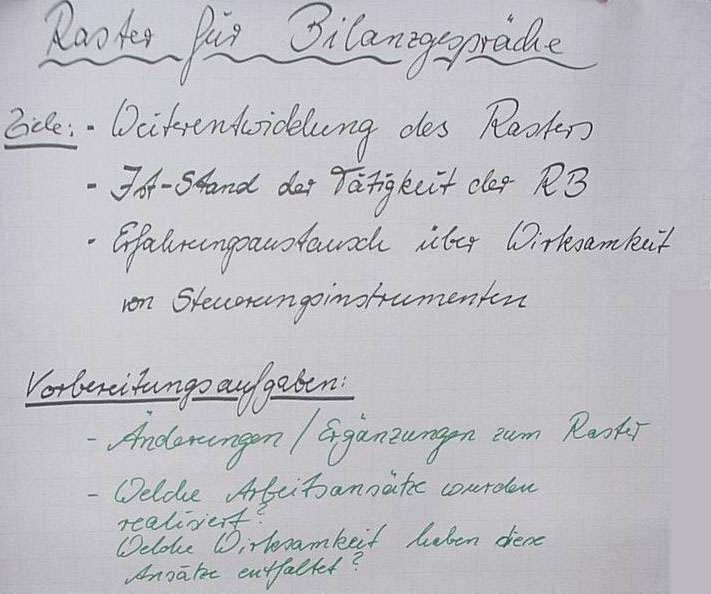 Raster für Bilanzgespräche
Ziele: - Weiterentwicklung des Rasters
- Ist-Stand der Tätigkeit der RB
- Erfahrungsaustausch über Wirksamkeit
von Steuerungsinstrumenten
Vorbereitungsaufgaben:
- Änderungen / Ergänzungen zum Raster
- Welche Arbeitsansätze wurden
realisiert?
Welche Wirksamkeit haben diese
Ansätze entfaltet?